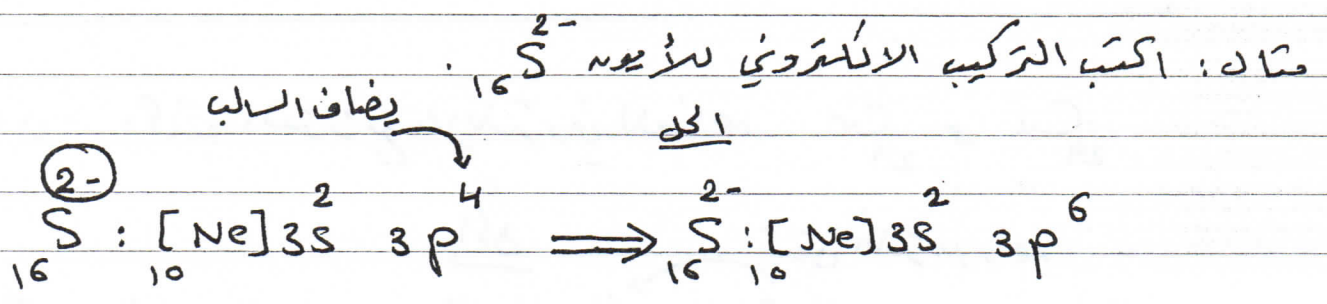 مثال: اكتب التركيب الالكتروني للأيون ₁₆S²⁻.
الحل
يضاف السالب
₁₆S²⁻ : [₁₀Ne] 3s² 3p⁴ ⟹ ₁₆S²⁻ : [₁₀Ne] 3s² 3p⁶